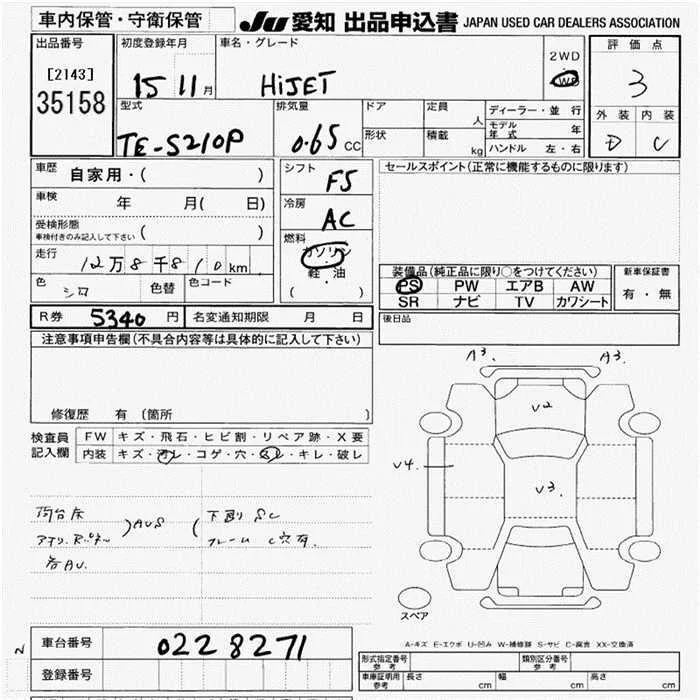 車内保管・守衛保管
JU 愛知 出品申込書 JAPAN USED CAR DEALERS ASSOCIATION
出品番号
[2143]
35158
初度登録年月
15 11 月
車名・グレード
HiJET
2WD
4WD
評価点
3
外装 内装
D C
型式
TE-S210P
排気量
0.65 CC
ドア
形状
定員 人
積載 kg
ディーラー・並 行
モデル年式 年
ハンドル 左・右
車歴 自家用・( )
車検 年 月( 日)
受検形態
車検付きのみ記入して下さい ( )
走行 12万8千810km
色 シロ 色替 色コード
シフト F5
冷房 AC
燃料
ガソリン
・
軽・油
( )
セールスポイント(正常に機能するものに限ります)
装備品(純正品に限り○をつけてください)
PS PW エアB AW
SR ナビ TV カワシート
新車保証書
有・無
後日品
R券 5340 円 名変通知期限 月 日
注意事項申告欄(不具合内容等は具体的に記入して下さい)
修復歴 有 (箇所 )
検査員
記入欄
FW キズ・飛石・ヒビ割・リペア跡・X要
内装 キズ・汚レ・コゲ・穴・スレ・キレ・破レ
荷台床 ) AUS ( 下廻り SC
フレーム C穴有.
各AU.
A3. A3.
V2
V4.
V3.
スペア
A-キズ E-エクボ U-凹み W-補修跡 S-サビ C-腐食 XX-交換済
N
車台番号 0228271
登録番号
形式指定番号
参考
類別区分番号
参考
車庫証明用
参考
長さ cm 幅 cm 高さ cm